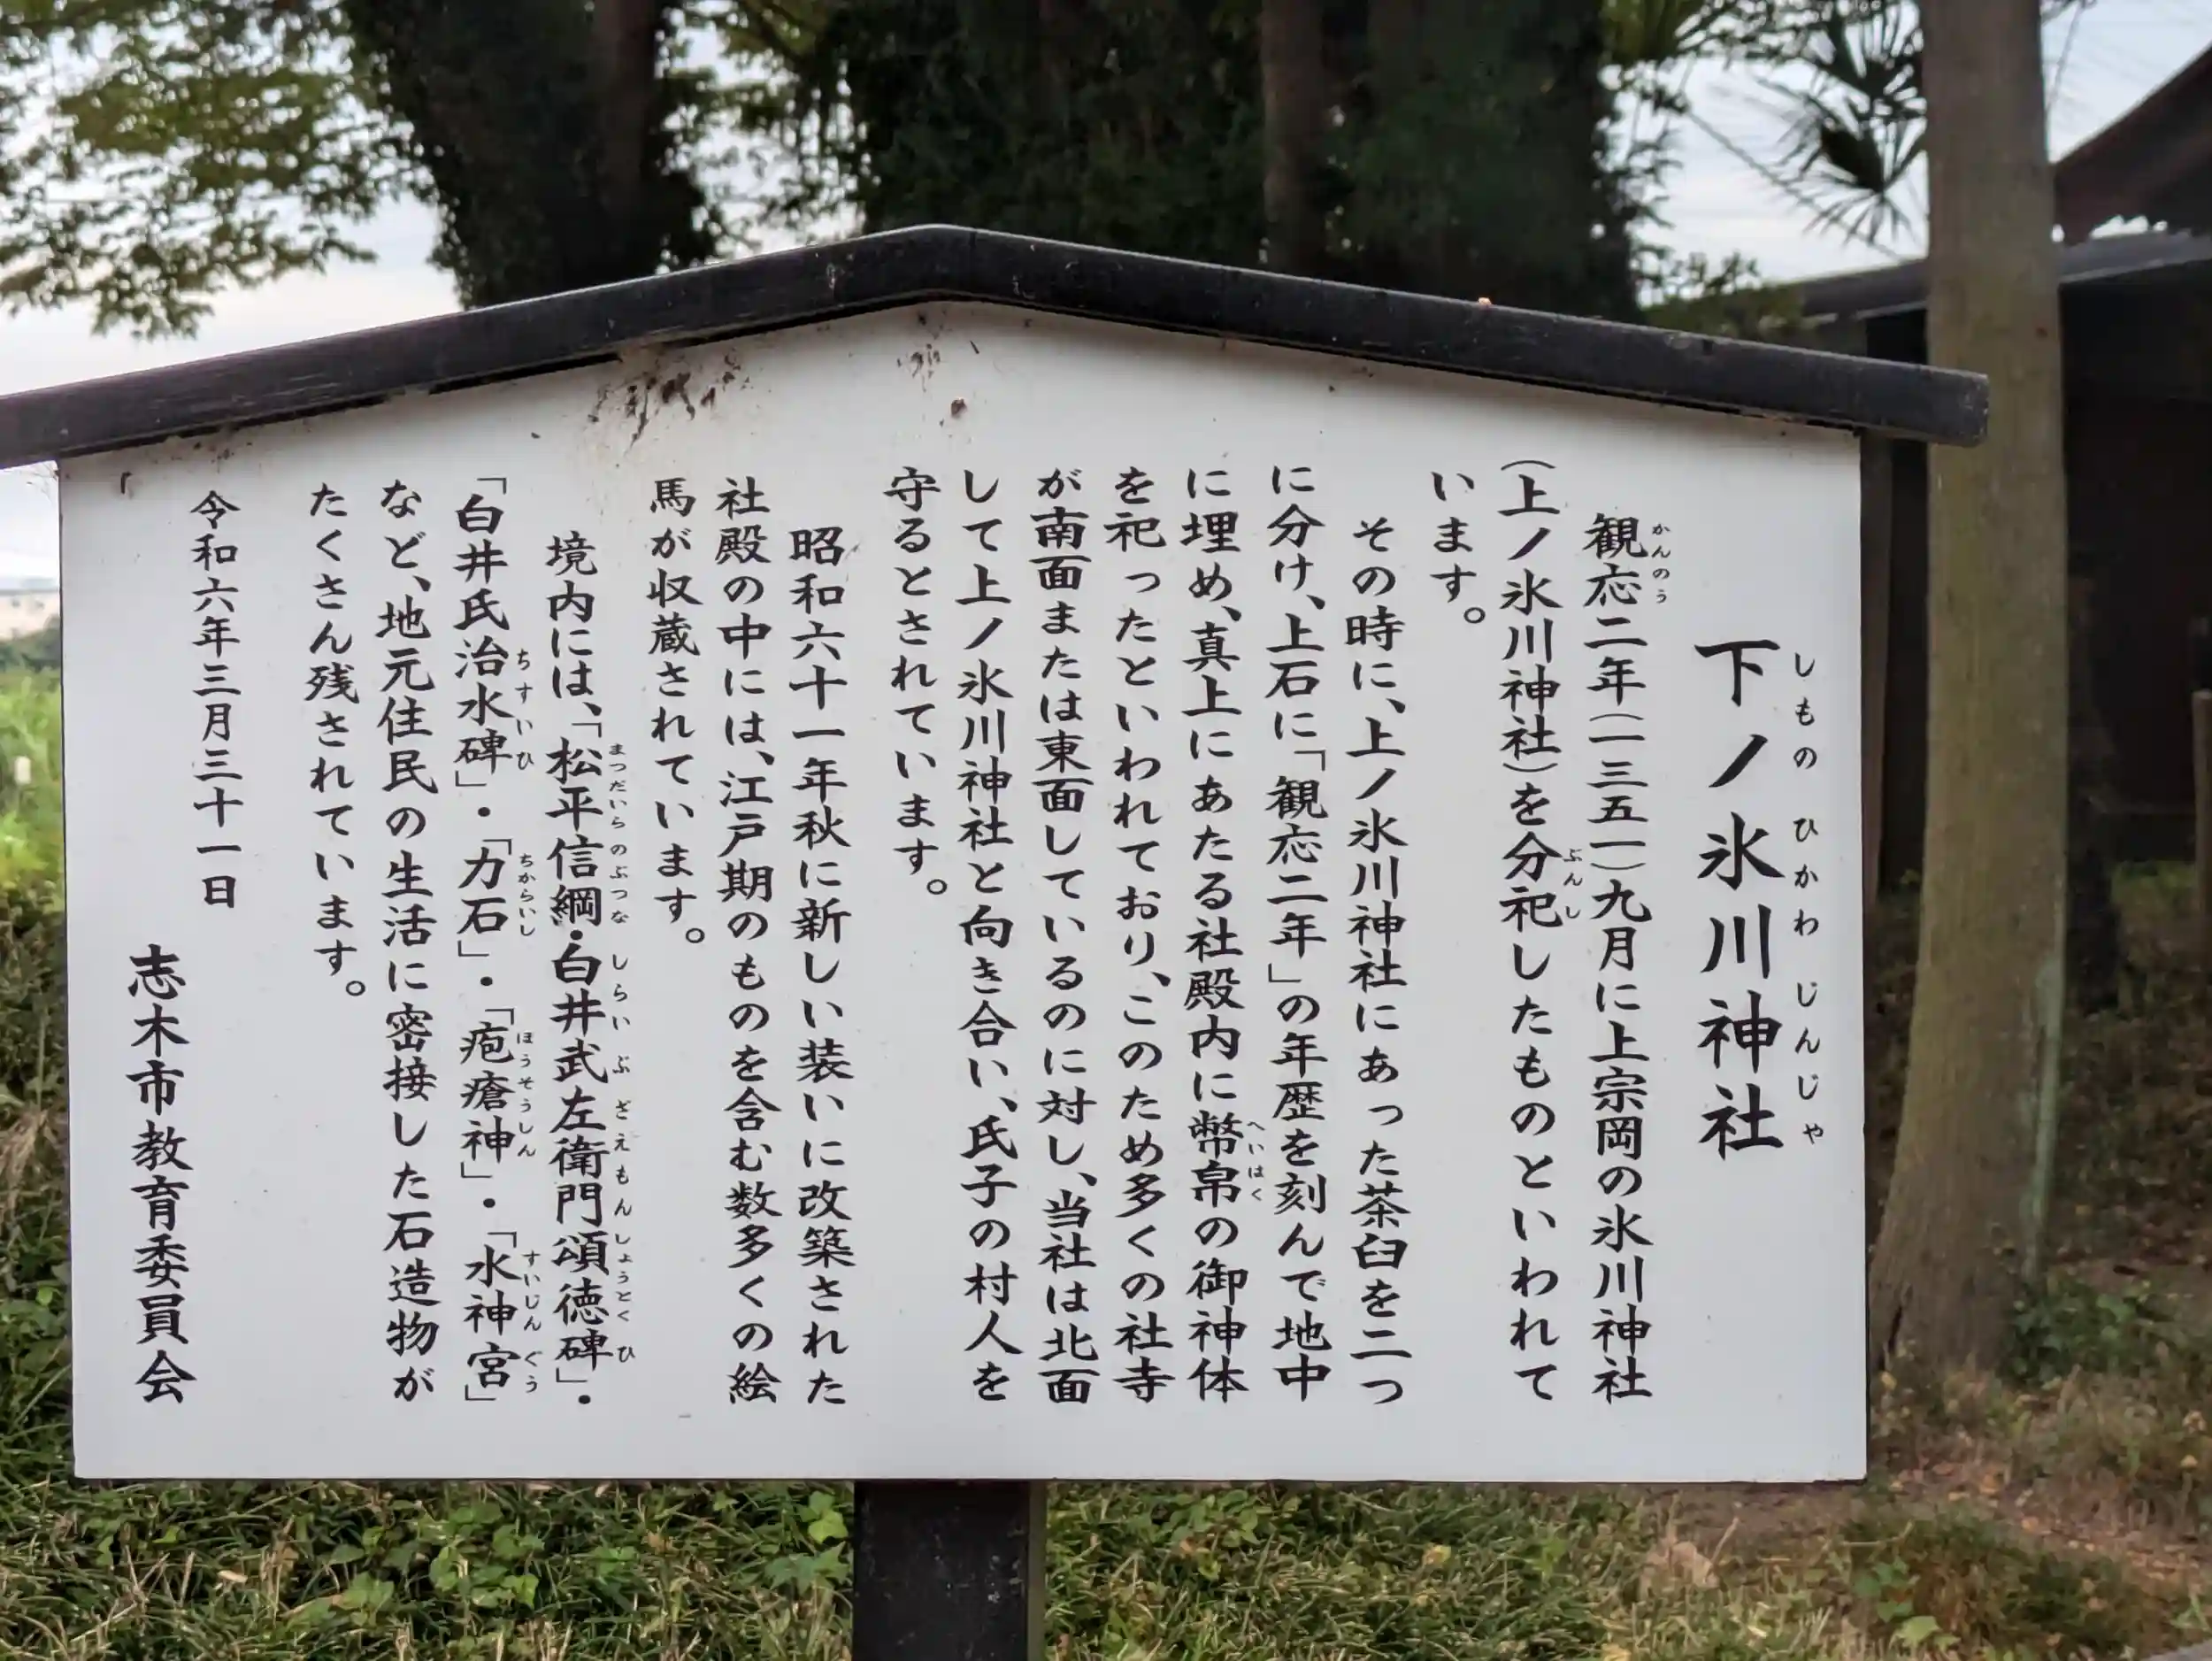 下ノ氷川神社
しものひかわじんじゃ
観応二年(一三五一)九月に上宗岡の氷川神社
かんのう
(上ノ氷川神社)を分祀したものといわれて
ぶんし
います。
その時に、上ノ氷川神社にあった茶臼を二つ
に分け、上石に「観応二年」の年歴を刻んで地中
に埋め、真上にあたる社殿内に幣帛の御神体
へいはく
を祀ったといわれており、このため多くの社寺
が南面または東面しているのに対し、当社は北面
して上ノ氷川神社と向き合い、氏子の村人を
守るとされています。
昭和六十一年秋に新しい装いに改築された
社殿の中には、江戸期のものを含む数多くの絵
馬が収蔵されています。
境内には、「松平信綱・白井武左衛門頌徳碑」・
まつだいらのぶつな しらいぶざえもんしょうとくひ
「白井氏治水碑」・「力石」・「疱瘡神」・「水神宮」
ちすいひ ちからいし ほうそうしん すいじんぐう
など、地元住民の生活に密接した石造物が
たくさん残されています。
令和六年三月三十一日
志木市教育委員会